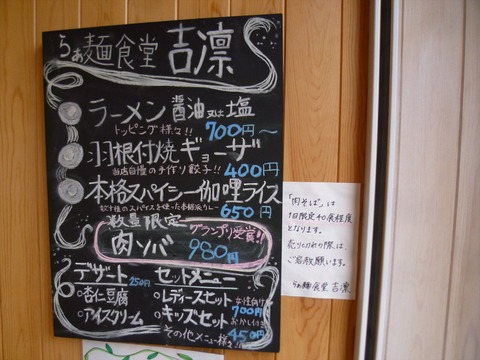 らぁ麺食堂 吉凛
ラーメン 醤油又は塩
トッピング様々!! 700円〜
羽根付焼ギョーザ
当店自慢の手作り餃子!! 400円
本格スパイシー伽哩ライス
数十種のスパイスを使った本格派カレー 650円
数量限定
グランプリ受賞!!
肉ソバ 980円
デザート 250円
○杏仁豆腐
○アイスクリーム
セットメニュー
○レディースセット 女性向け 700円
○キッズセット おかし付き 450円
その他メニュー様々!!
「肉そば」は
1日限定40食程度
となります。
売り切れの際は、
ご容赦願います。
らぁ麺食堂 吉凛